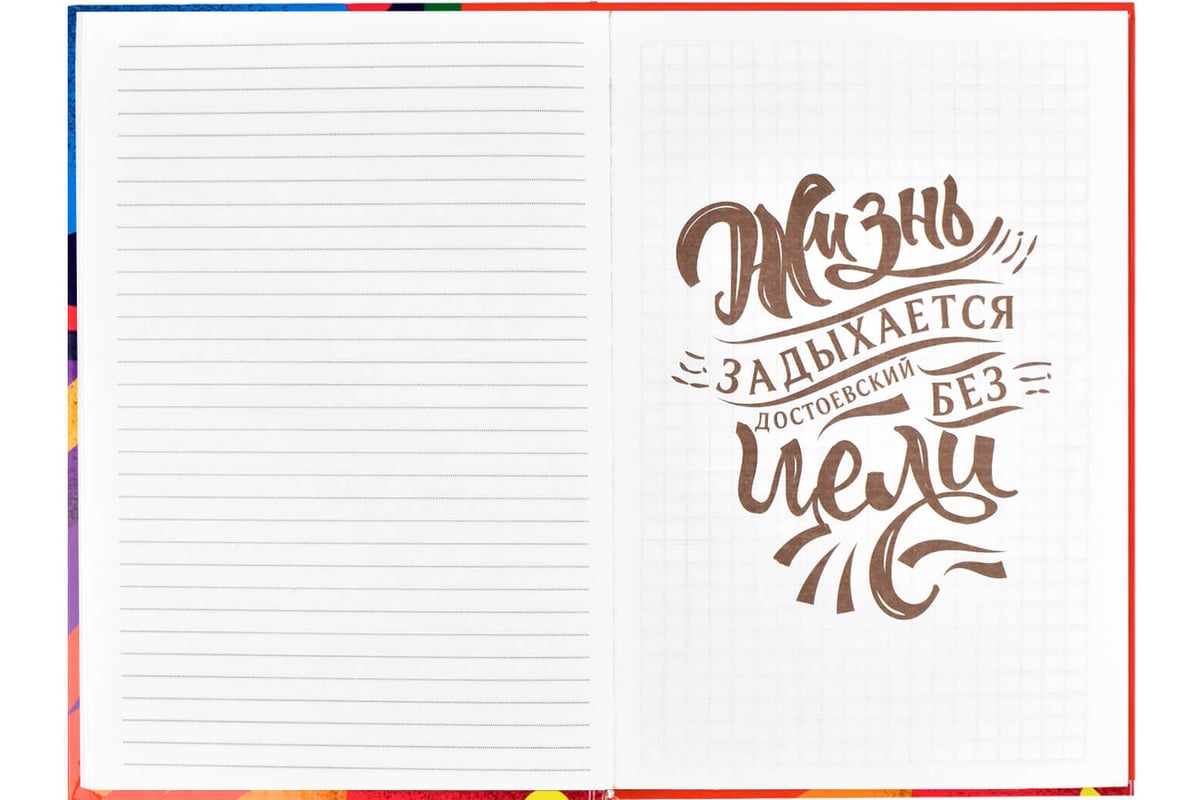 Жизнь
ЗАДЫХАЕТСЯ
ДОСТОЕВСКИЙ БЕЗ
цели